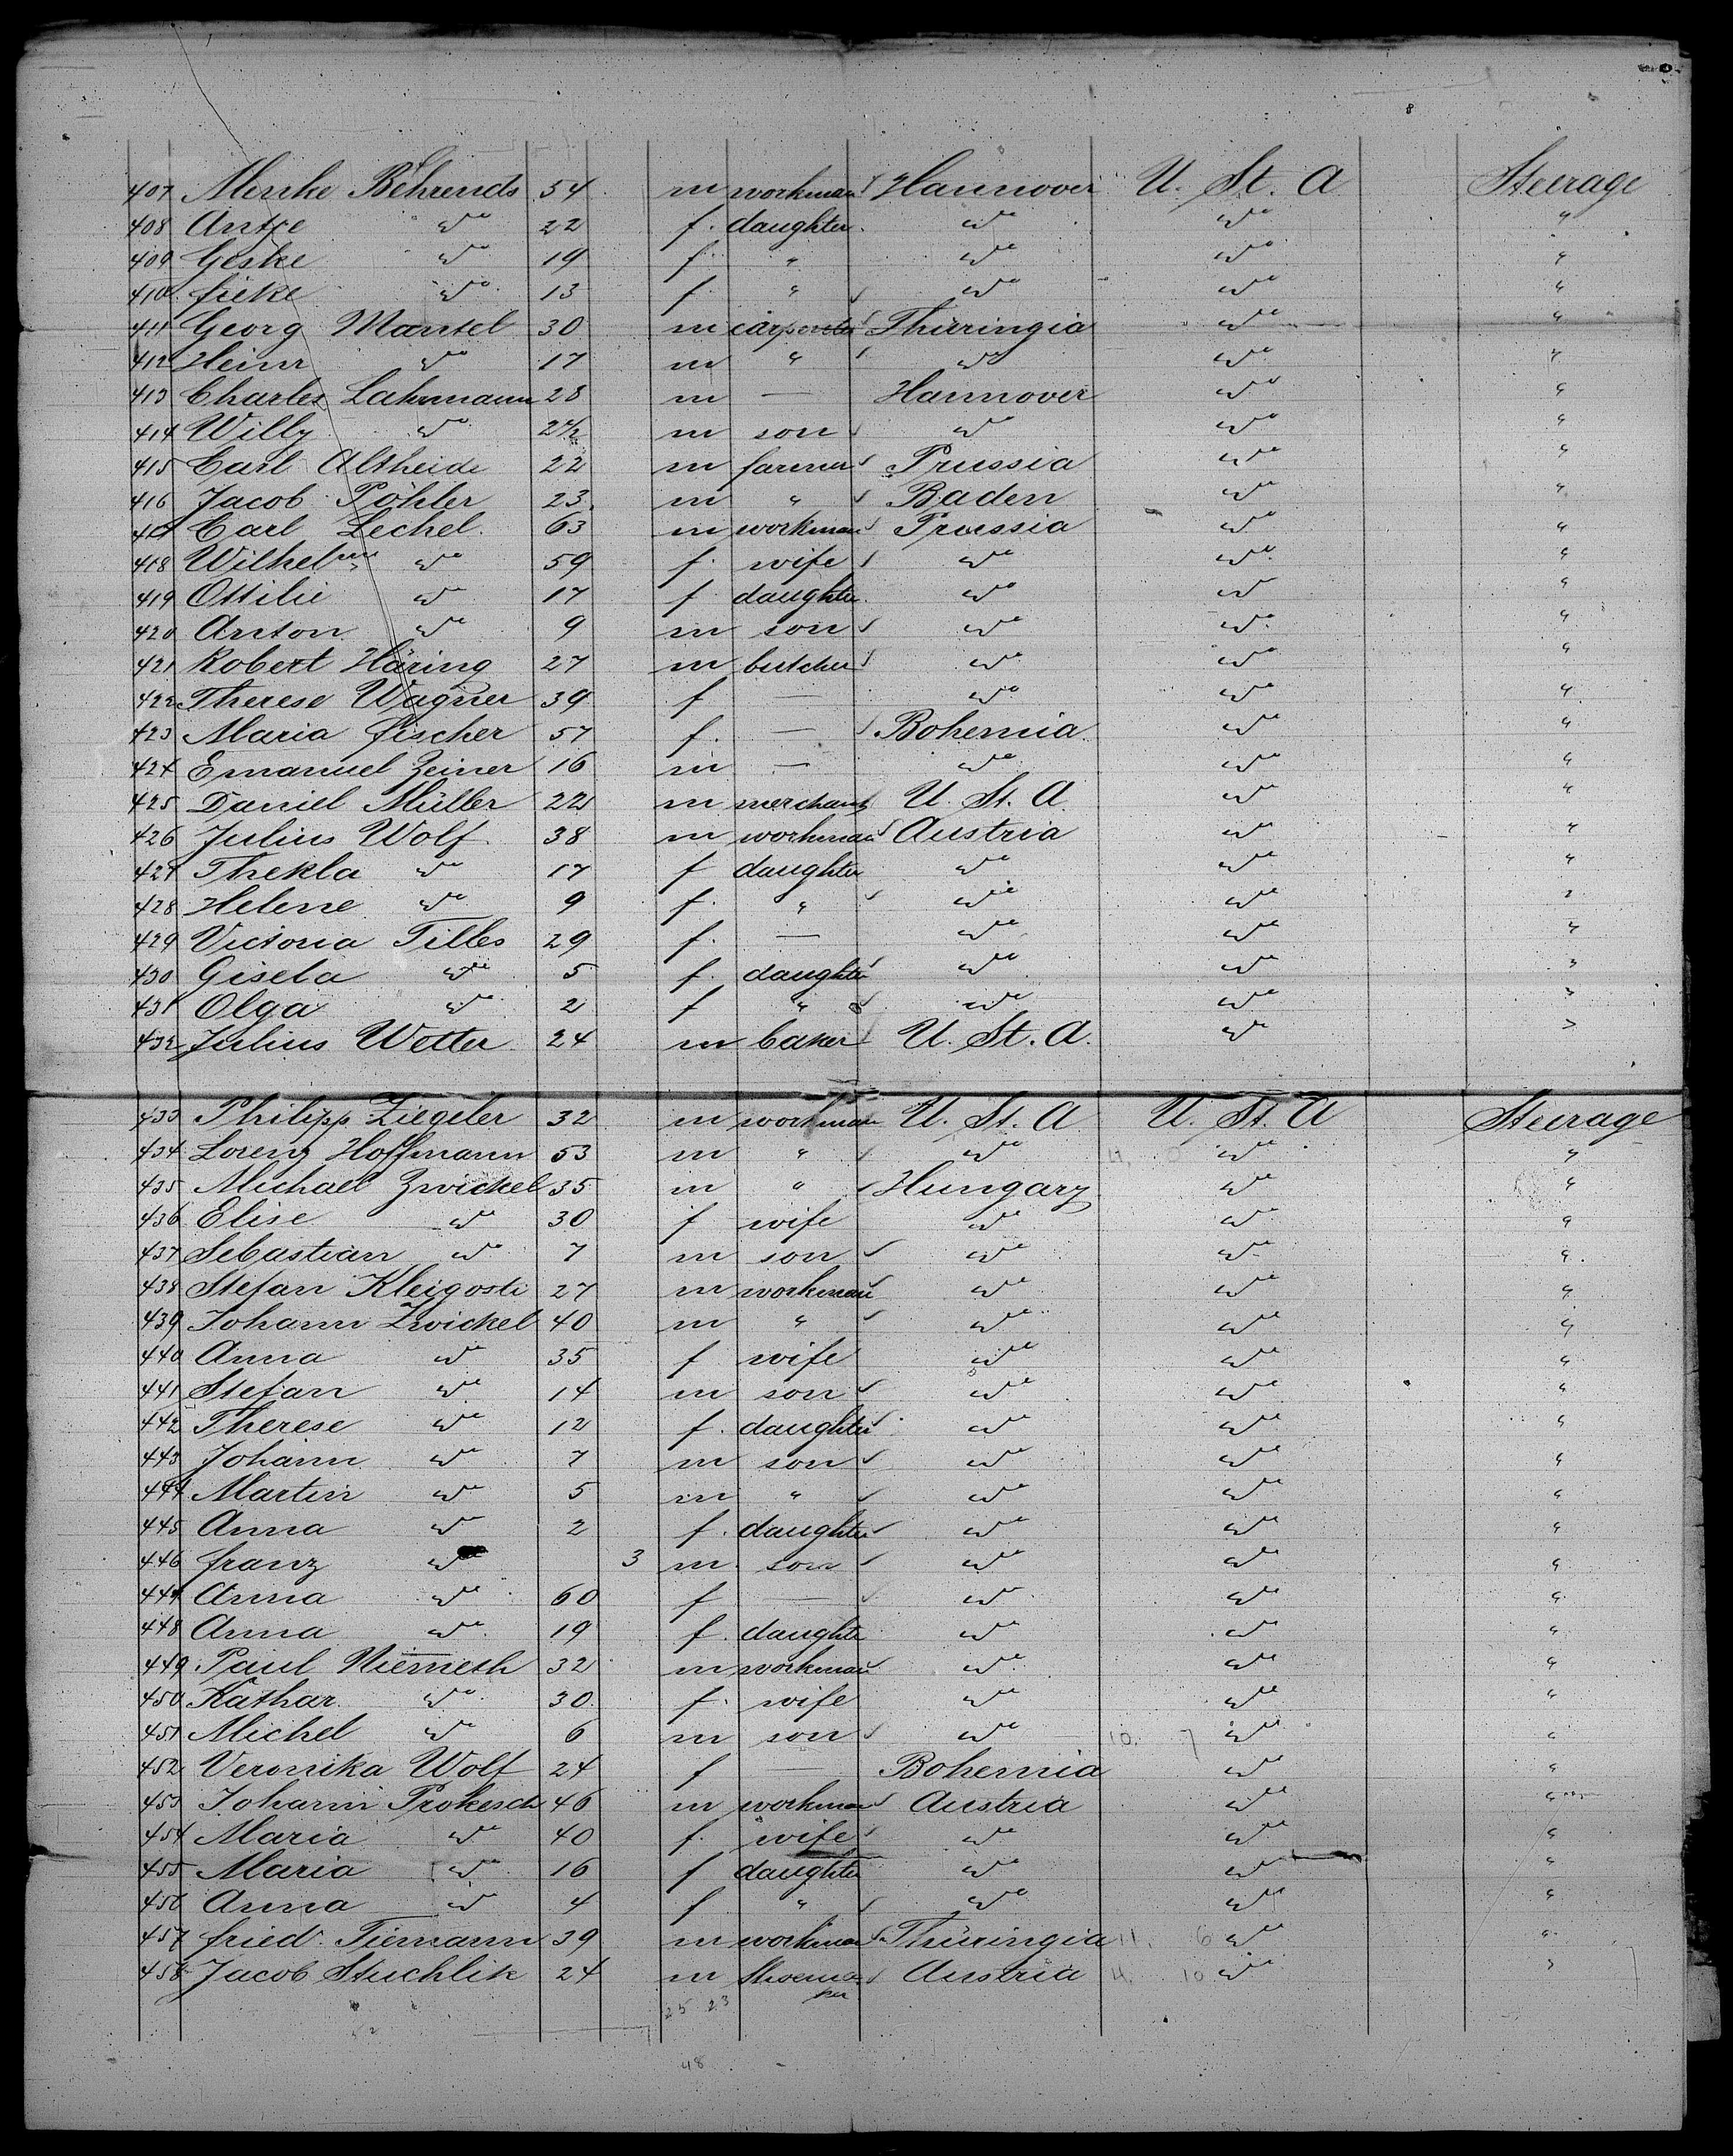 407 Menke Behrends 54 m workman Hannover U. St. A Steerage
408 Antje do 22 f. daughter do do "
409 Geske do 19 f. " do do "
410 fieke do 13 f. " do do "
411 Georg Mantel 30 m carpenter Thüringia do "
412 Heinr do 17 m " do do "
413 Charles Lahmann 28 m — Hannover do "
414 Willy do 2½ m son do do "
415 Carl Altheide 22 m farmer Prussia do "
416 Jacob Pöhler 23 m " Baden do "
417 Carl Lechel 63 m workman Prussia do "
418 Wilhelmne do 59 f. wife do do "
419 Ottilie do 17 f daughter do do "
420 Anton do 9 m son do do "
421 Robert Häring 27 m butcher do do "
422 Therese Wagner 39 f — do do "
423 Maria fischer 57 f. — Bohemia do "
424 Emanuel Zeiner 16 m — do do "
425 Daniel Müller 22 m merchant U. St. A do "
426 Julius Wolf 38 m workman Austria do "
427 Thekla do 17 f daughter do do "
428 Helene do 9 f. " do do "
429 Victoria Tilles 29 f. — do do "
430 Gisela do 5 f. daughter do do "
431 Olga do 2 f " do do "
432 Julius Wetter 24 m baker U. St. A. do "
433 Philipp Ziegeler 32 m workman U. St. A U. St. A Steerage
434 Lorenz Hoffmann 53 m " do do "
435 Michael Zwickel 35 m " Hungary do "
436 Elise do 30 f wife do do "
437 Sebastian do 7 m son do do "
438 Stefan Kleigosti 27 m workman do do "
439 Johann Zwickel 40 m " do do "
440 Anna do 35 f wife do do "
441 Stefan do 14 m son do do "
442 Therese do 12 f. daughter do do "
443 Johann do 7 m son do do "
444 Martin do 5 m " do do "
445 Anna do 2 f. daughter do do "
446 franz do 3 m son do do "
447 Anna do 60 f — do do "
448 Anna do 19 f. daughter do do "
449 Paul Niemeth 32 m workman do do "
450 Kathar. do 30 f. wife do do "
451 Michel do 6 m son do 10. 7 do "
452 Veronika Wolf 24 f — Bohemia do "
453 Johann Prokesch 46 m workman Austria do "
454 Maria do 40 f. wife do do "
455 Maria do 16 f daughter do do "
456 Anna do 4 f " do do "
457 fried. Tiemann 39 m workman Thüringia 11. 6 do "
458 Jacob Stuchlik 24 m Shoemaker Austria 4. 10 do "
25 23
48